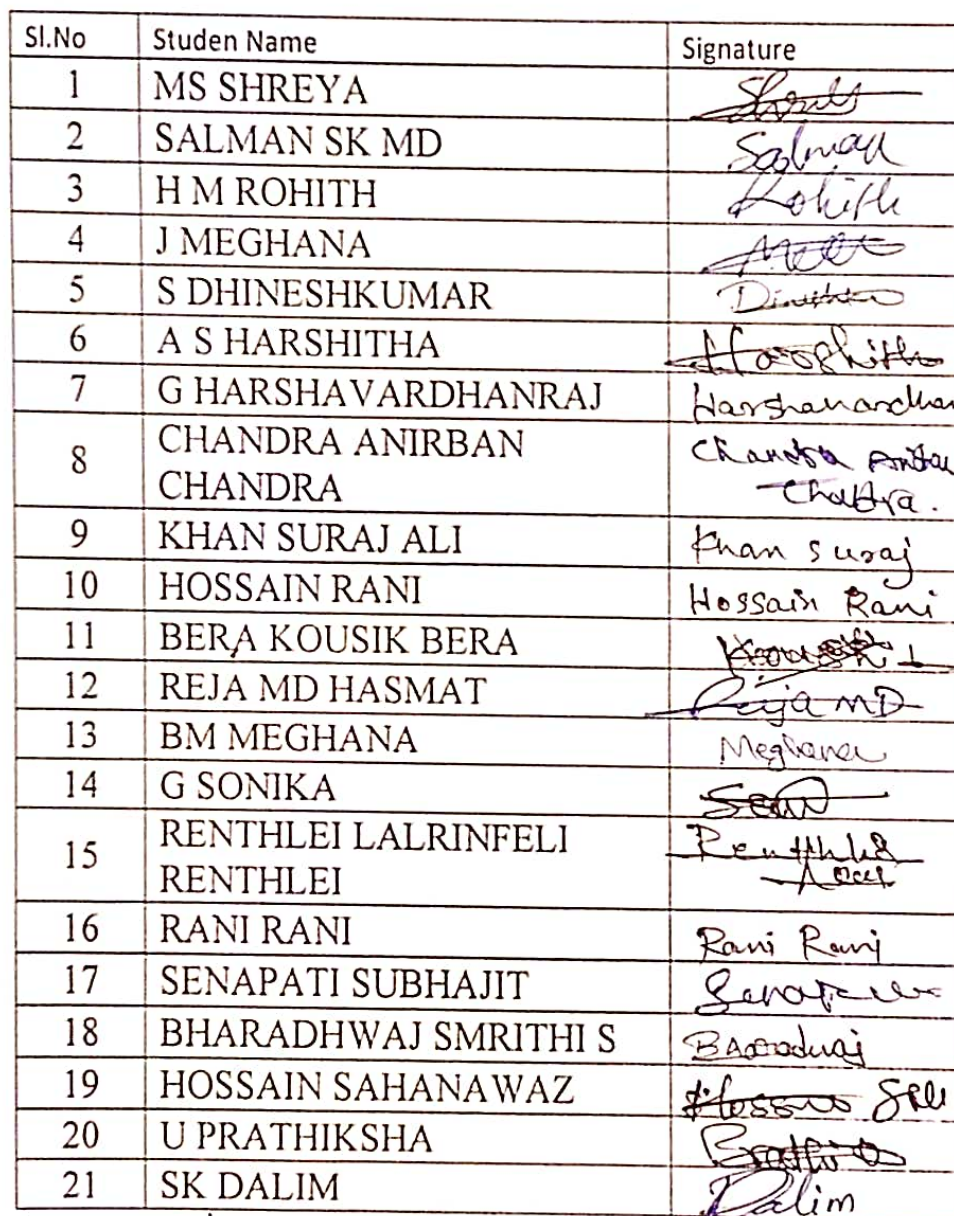 Sl.No Studen Name Signature
1 MS SHREYA
2 SALMAN SK MD Salman
3 H M ROHITH Rohith
4 J MEGHANA
5 S DHINESHKUMAR
6 A S HARSHITHA Harshitha
7 G HARSHAVARDHANRAJ Harshavardhan
8 CHANDRA ANIRBAN Chandra
CHANDRA Chandra.
9 KHAN SURAJ ALI Khan suraj
10 HOSSAIN RANI Hossain Rani
11 BERA KOUSIK BERA
12 REJA MD HASMAT Reja MD
13 BM MEGHANA Meghana
14 G SONIKA
15 RENTHLEI LALRINFELI
RENTHLEI
16 RANI RANI Rani Rani
17 SENAPATI SUBHAJIT
18 BHARADHWAJ SMRITHI S
19 HOSSAIN SAHANAWAZ
20 U PRATHIKSHA
21 SK DALIM Dalim